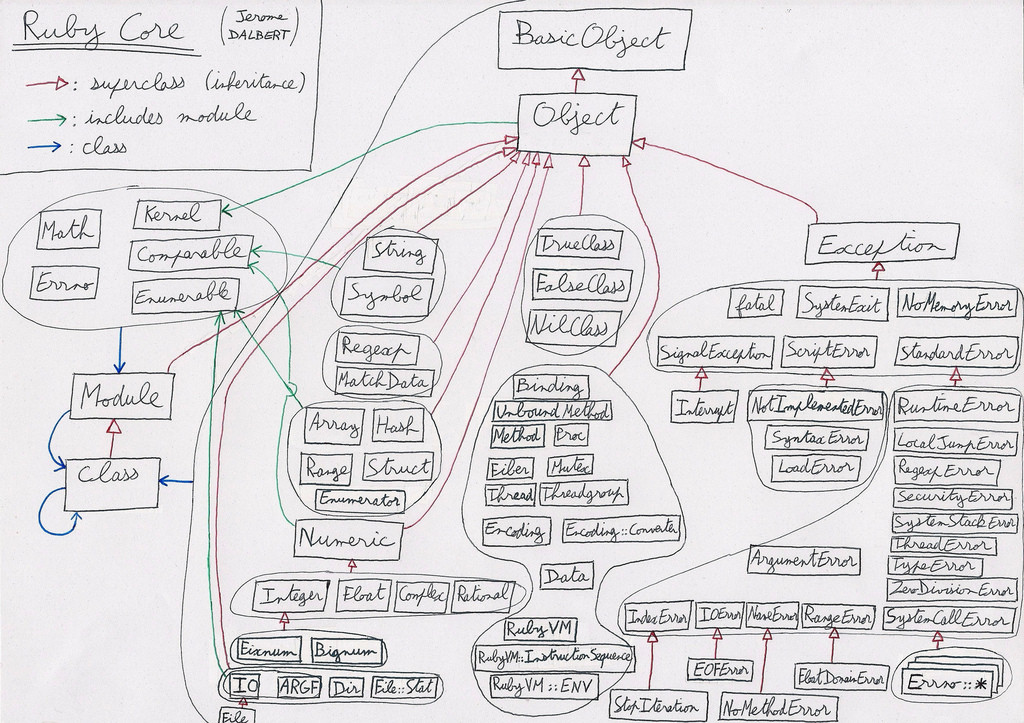 Ruby Core
(Jerome
DALBERT)
: superclass (inheritance)
: includes module
: class
BasicObject
Object
Math
Kernel
Comparable
Errno
Enumerable
String
Symbol
TrueClass
FalseClass
NilClass
Exception
fatal
SystemExit
NoMemoryError
SignalException
ScriptError
StandardError
Regexp
MatchData
Module
Class
Array
Hash
Range
Struct
Enumerator
Binding
Unbound Method
Method
Proc
Fiber
Mutex
Thread
Threadgroup
Encoding
Encoding::Converter
Interrupt
NotImplementedError
SyntaxError
LoadError
RuntimeError
LocalJumpError
RegexpError
SecurityError
SystemStackError
ThreadError
TypeError
ZeroDivisionError
SystemCallError
Numeric
Integer
Float
Complex
Rational
Data
ArgumentError
IndexError
IOError
NameError
RangeError
Fixnum
Bignum
IO
ARGF
Dir
File::Stat
File
RubyVM
RubyVM::InstructionSequence
RubyVM::ENV
StopIteration
EOFError
NoMethodError
FloatDomainError
Errno::*